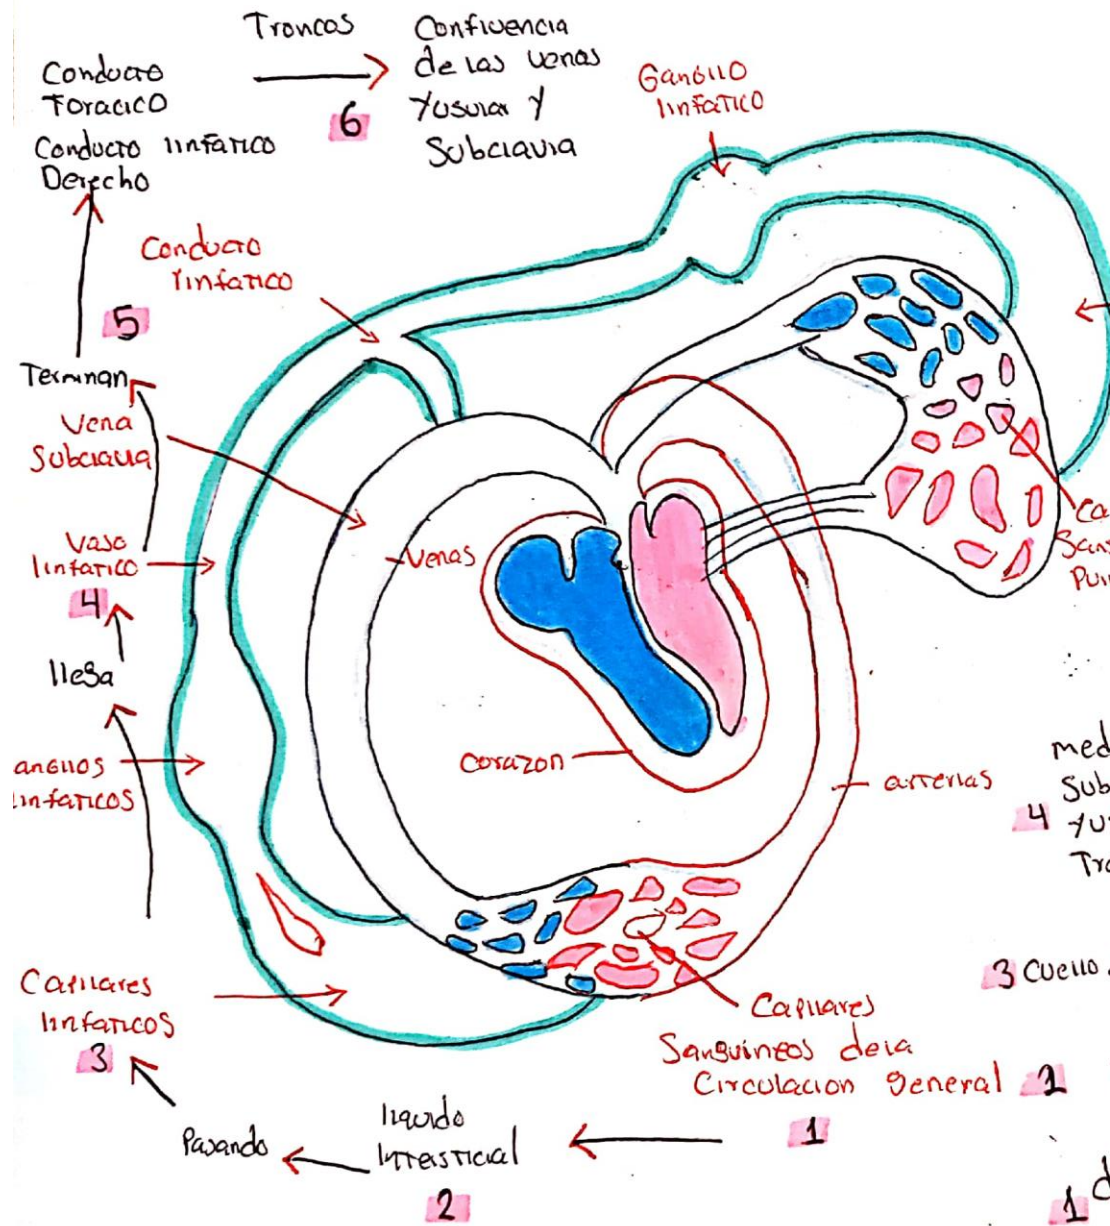 Troncos
Conducto
Toracico
Conducto linfatico
Derecho
6
Confluencia
de las venas
Yugular y
Subclavia
Ganglio
linfatico
Conducto
linfatico
5
Terminan
Vena
Subclavia
Vaso
linfatico
4
llega
anglios
linfaticos
Venas
Corazon
arterias
Ca
San
Pul
med
Sub
4 Yu
Tra
3 Cuello
Capilares
linfaticos
3
Capilares
Sanguineos dela
Circulacion general 2
1
liquido
Intersticial
2
Pasando
1 d